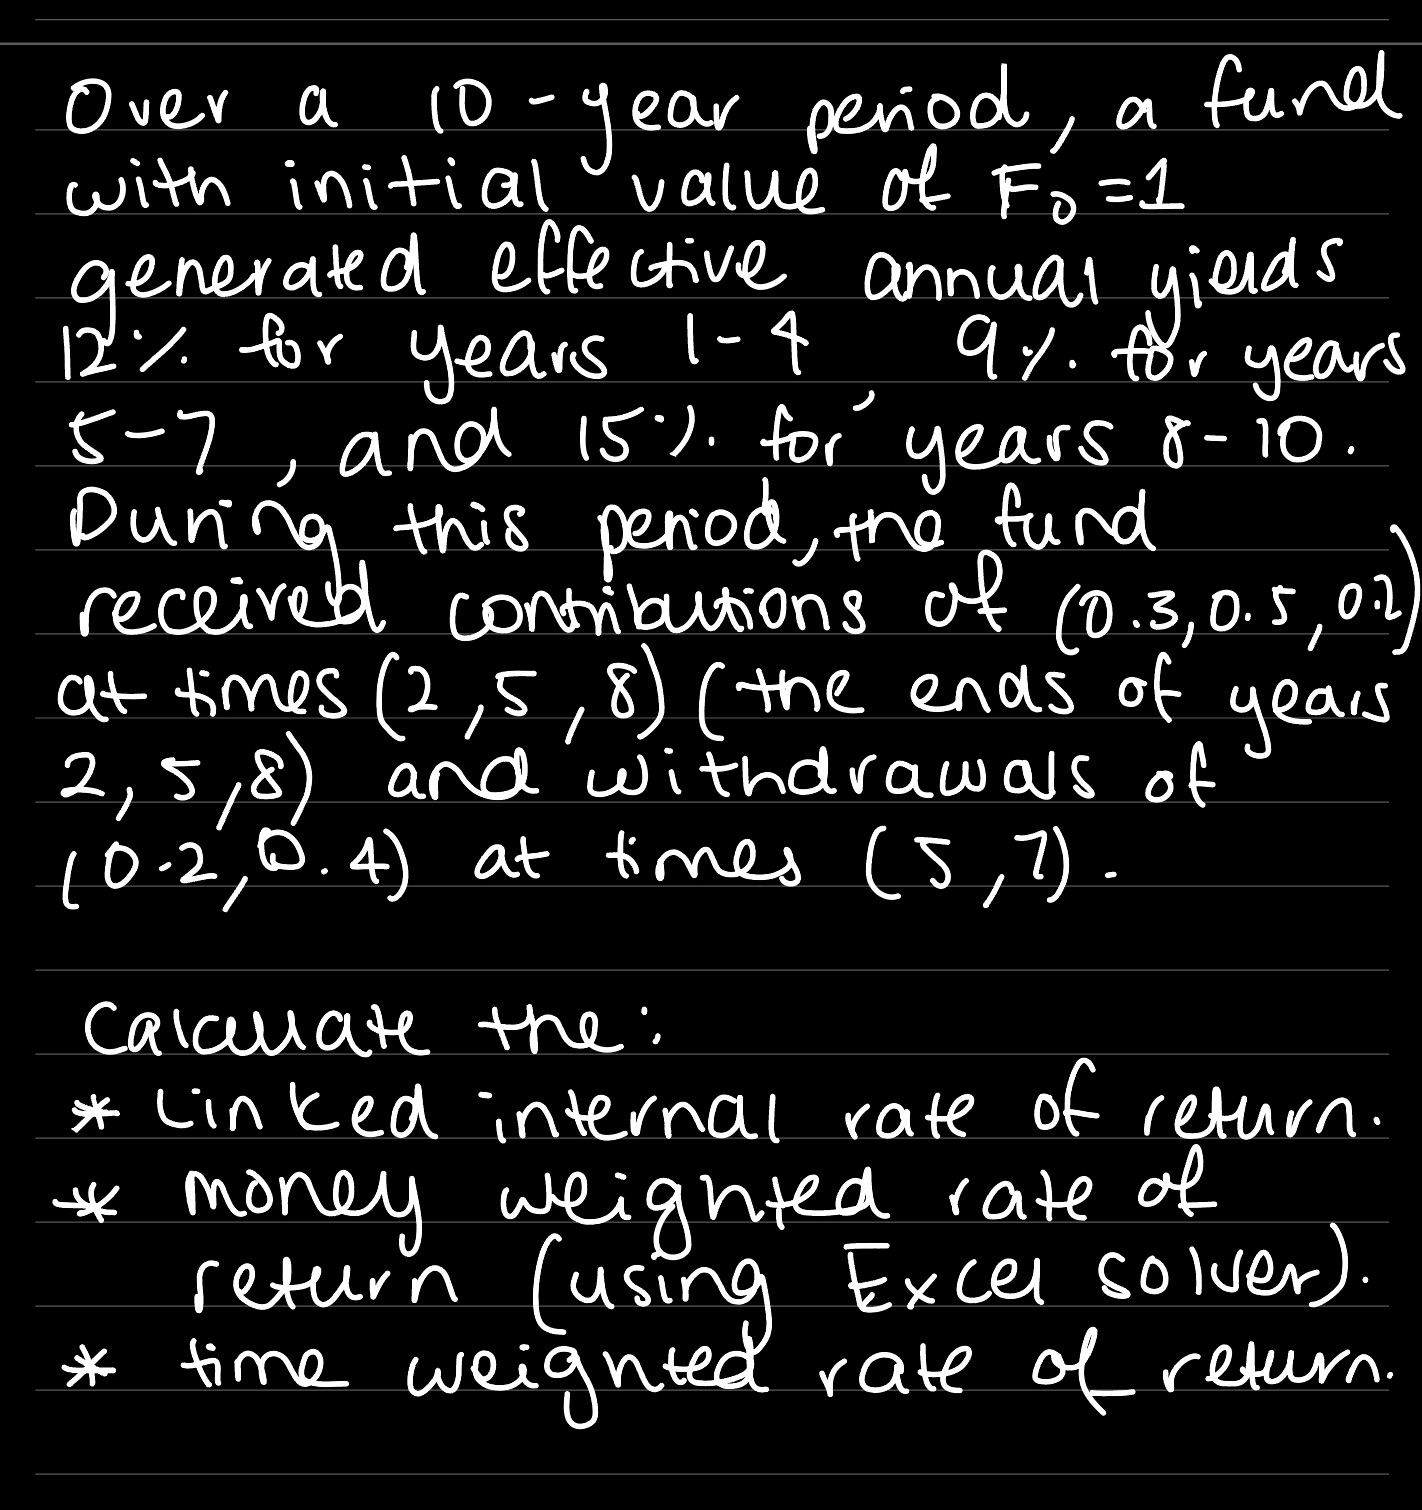 Over a 10-year period, a fund
with initial value of F₀=1
generated effective annual yields
12% for years 1-4, 9% for years
5-7, and 15% for years 8-10.
During this period, the fund
received contributions of (0.3, 0.5, 0.2)
at times (2, 5, 8) (the ends of years
2, 5, 8) and withdrawals of
(0.2, 0.4) at times (5, 7).
Calculate the:
* Linked internal rate of return.
* money weighted rate of
return (using Excel solver).
* time weighted rate of return.